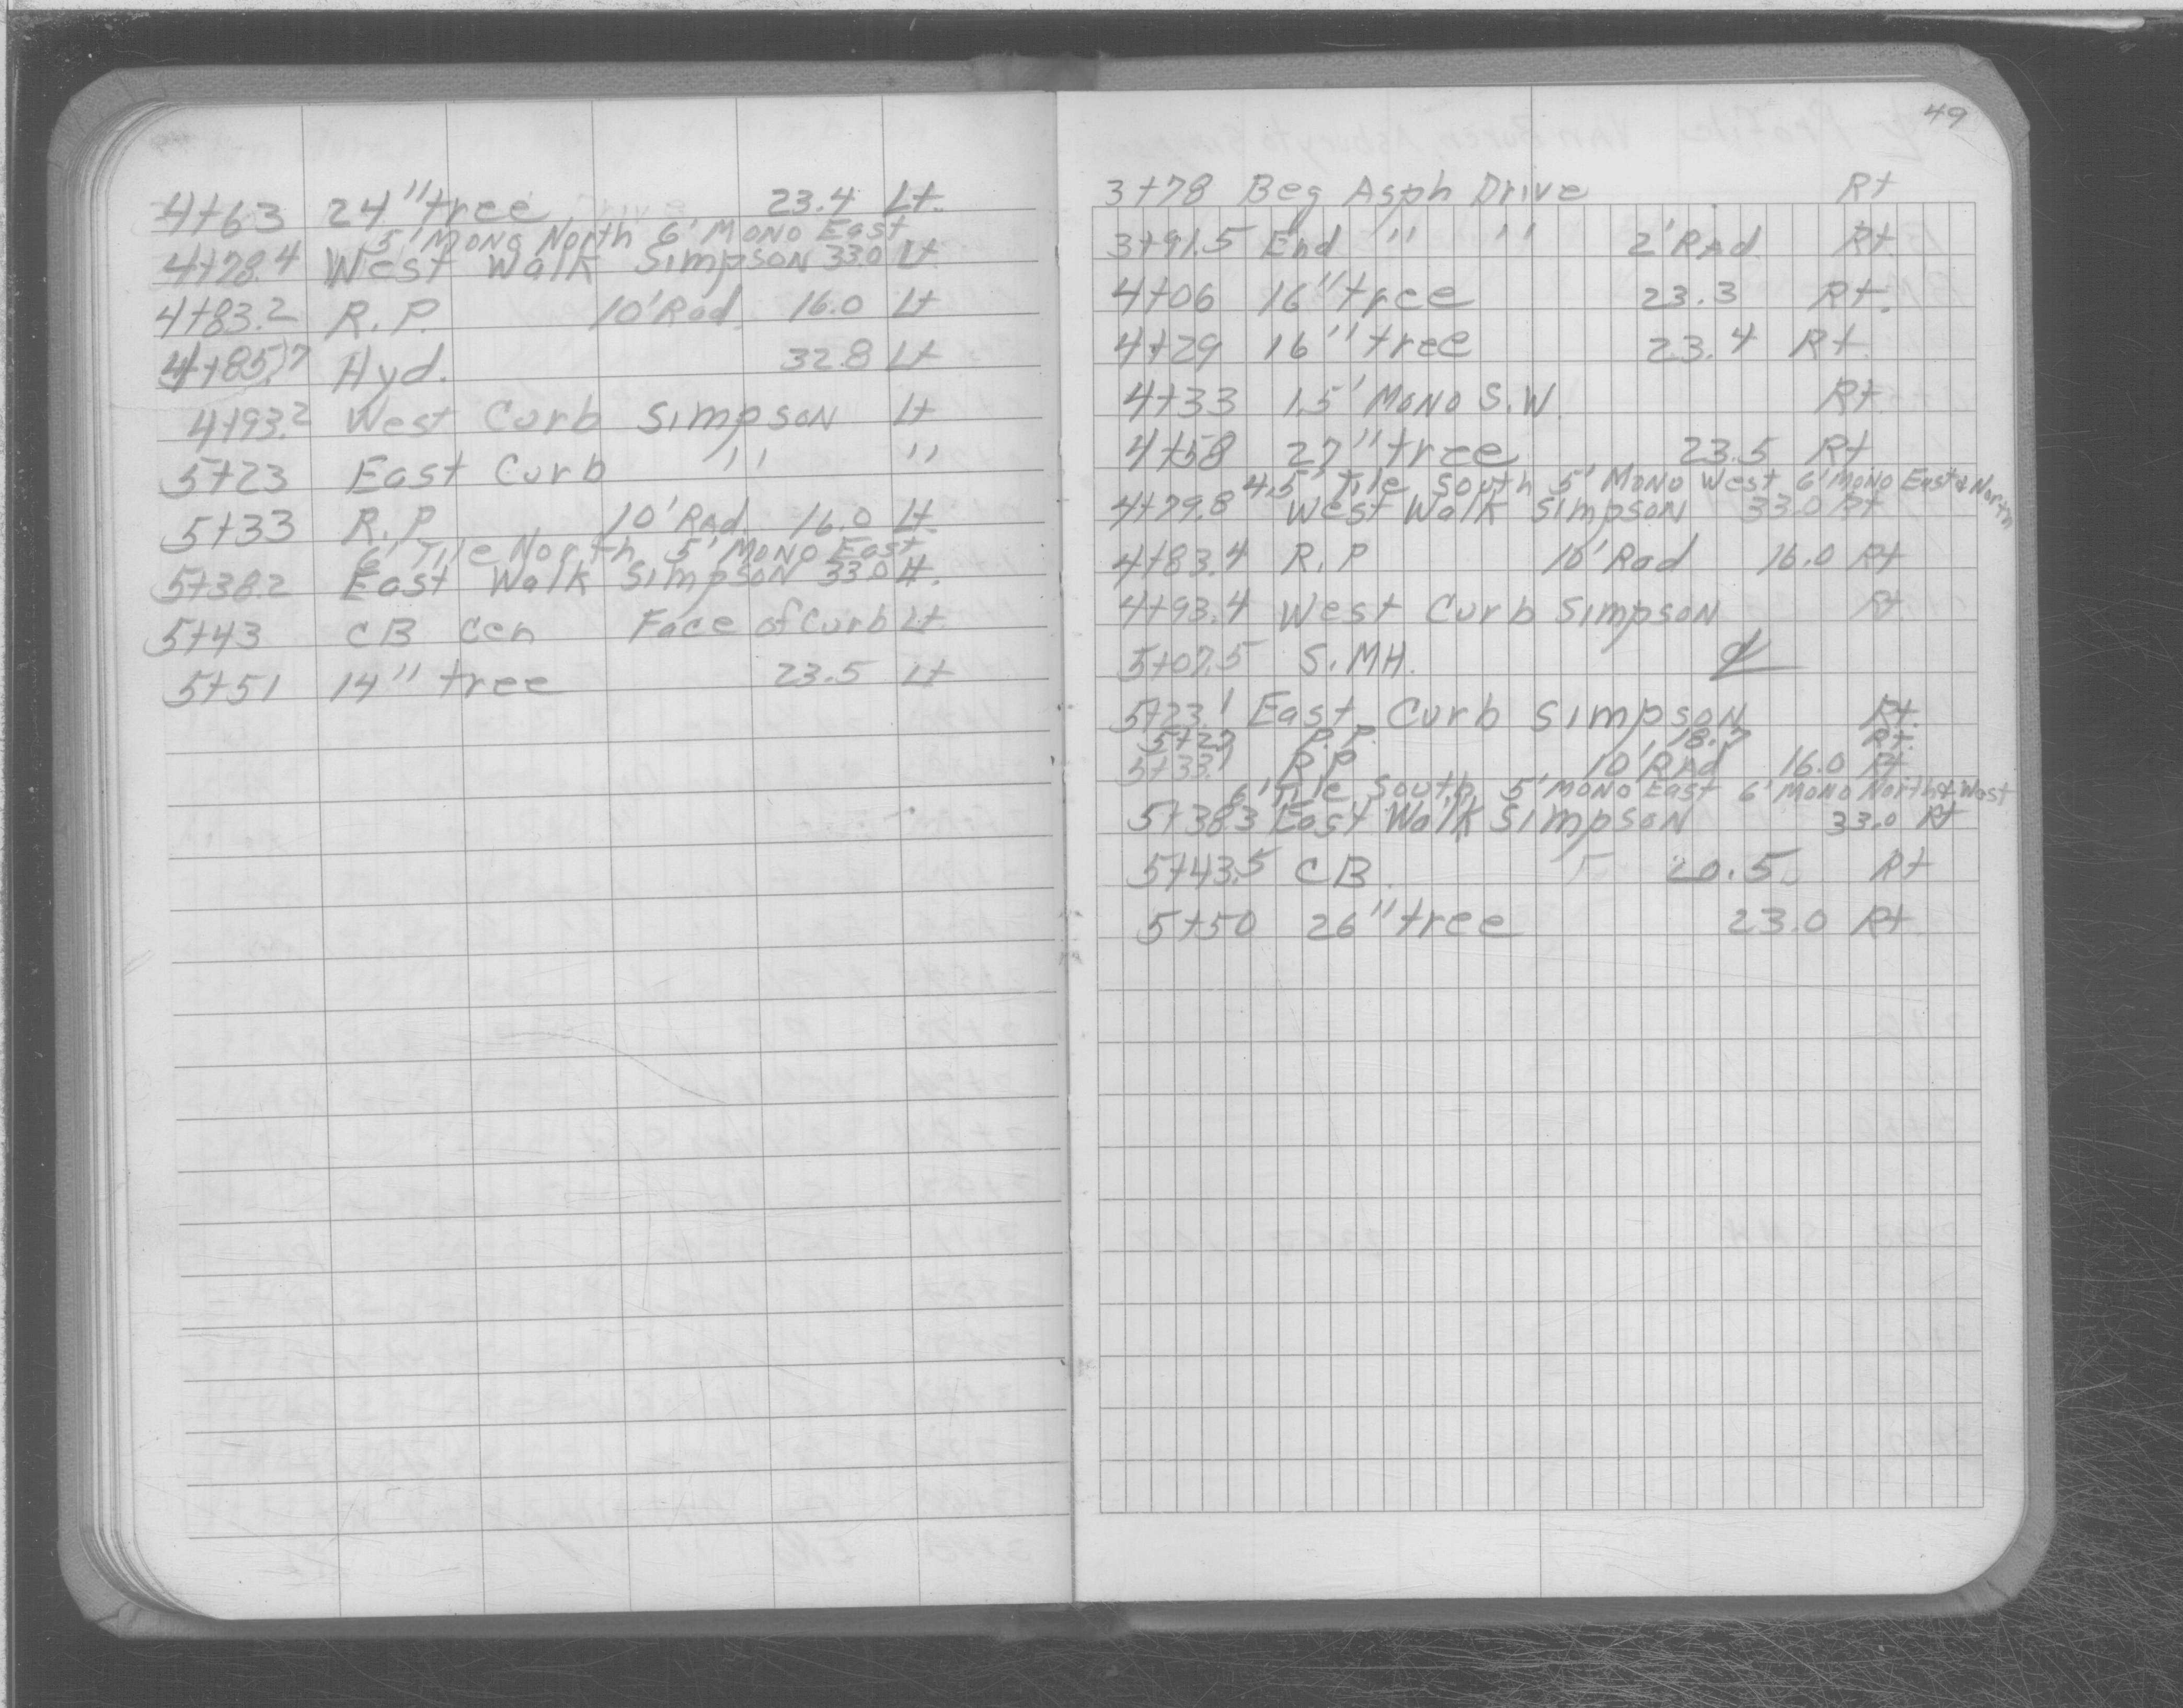 4+63 24" tree 23.4 Lt.
5' Mono North 6' Mono East
4+78.4 West Walk Simpson 33.0 Lt
4+83.2 R.P. 10' Rad. 16.0 Lt
4+85.7 Hyd. 32.8 Lt
4+93.2 West Curb Simpson Lt
5+23 East Curb " "
5+33 R.P. 10' Rad. 16.0 Lt.
6' Tile North 5' Mono East
5+38.2 East Walk Simpson 33.0 Lt.
5+43 CB Cen Face of Curb Lt.
5+51 14" tree 23.5 Lt
49
3+78 Beg Asph Drive Rt
3+91.5 End " " 2' Rad. Rt.
4+06 16" tree 23.3 Rt.
4+29 16" tree 23.4 Rt.
4+33 1.5' Mono S.W. Rt.
4+58 27" tree 23.5 Rt
4.5' Tile South 5' Mono West 6' Mono East & North
4+79.8 West Walk Simpson 33.0 Rt
4+83.4 R.P 10' Rad 16.0 Rt
4+93.4 West Curb Simpson Rt
5+07.5 S.MH. ℄
5+23.1 East Curb Simpson Rt.
5+27 P.P. 18.7 Rt.
5+33.1 R.P 10' Rad 16.0 Rt
6' Tile South 5' Mono East 6' Mono North & West
5+38.3 East Walk Simpson 33.0 Rt
5+43.5 CB. 20.5 Rt
5+50 26" tree 23.0 Rt.